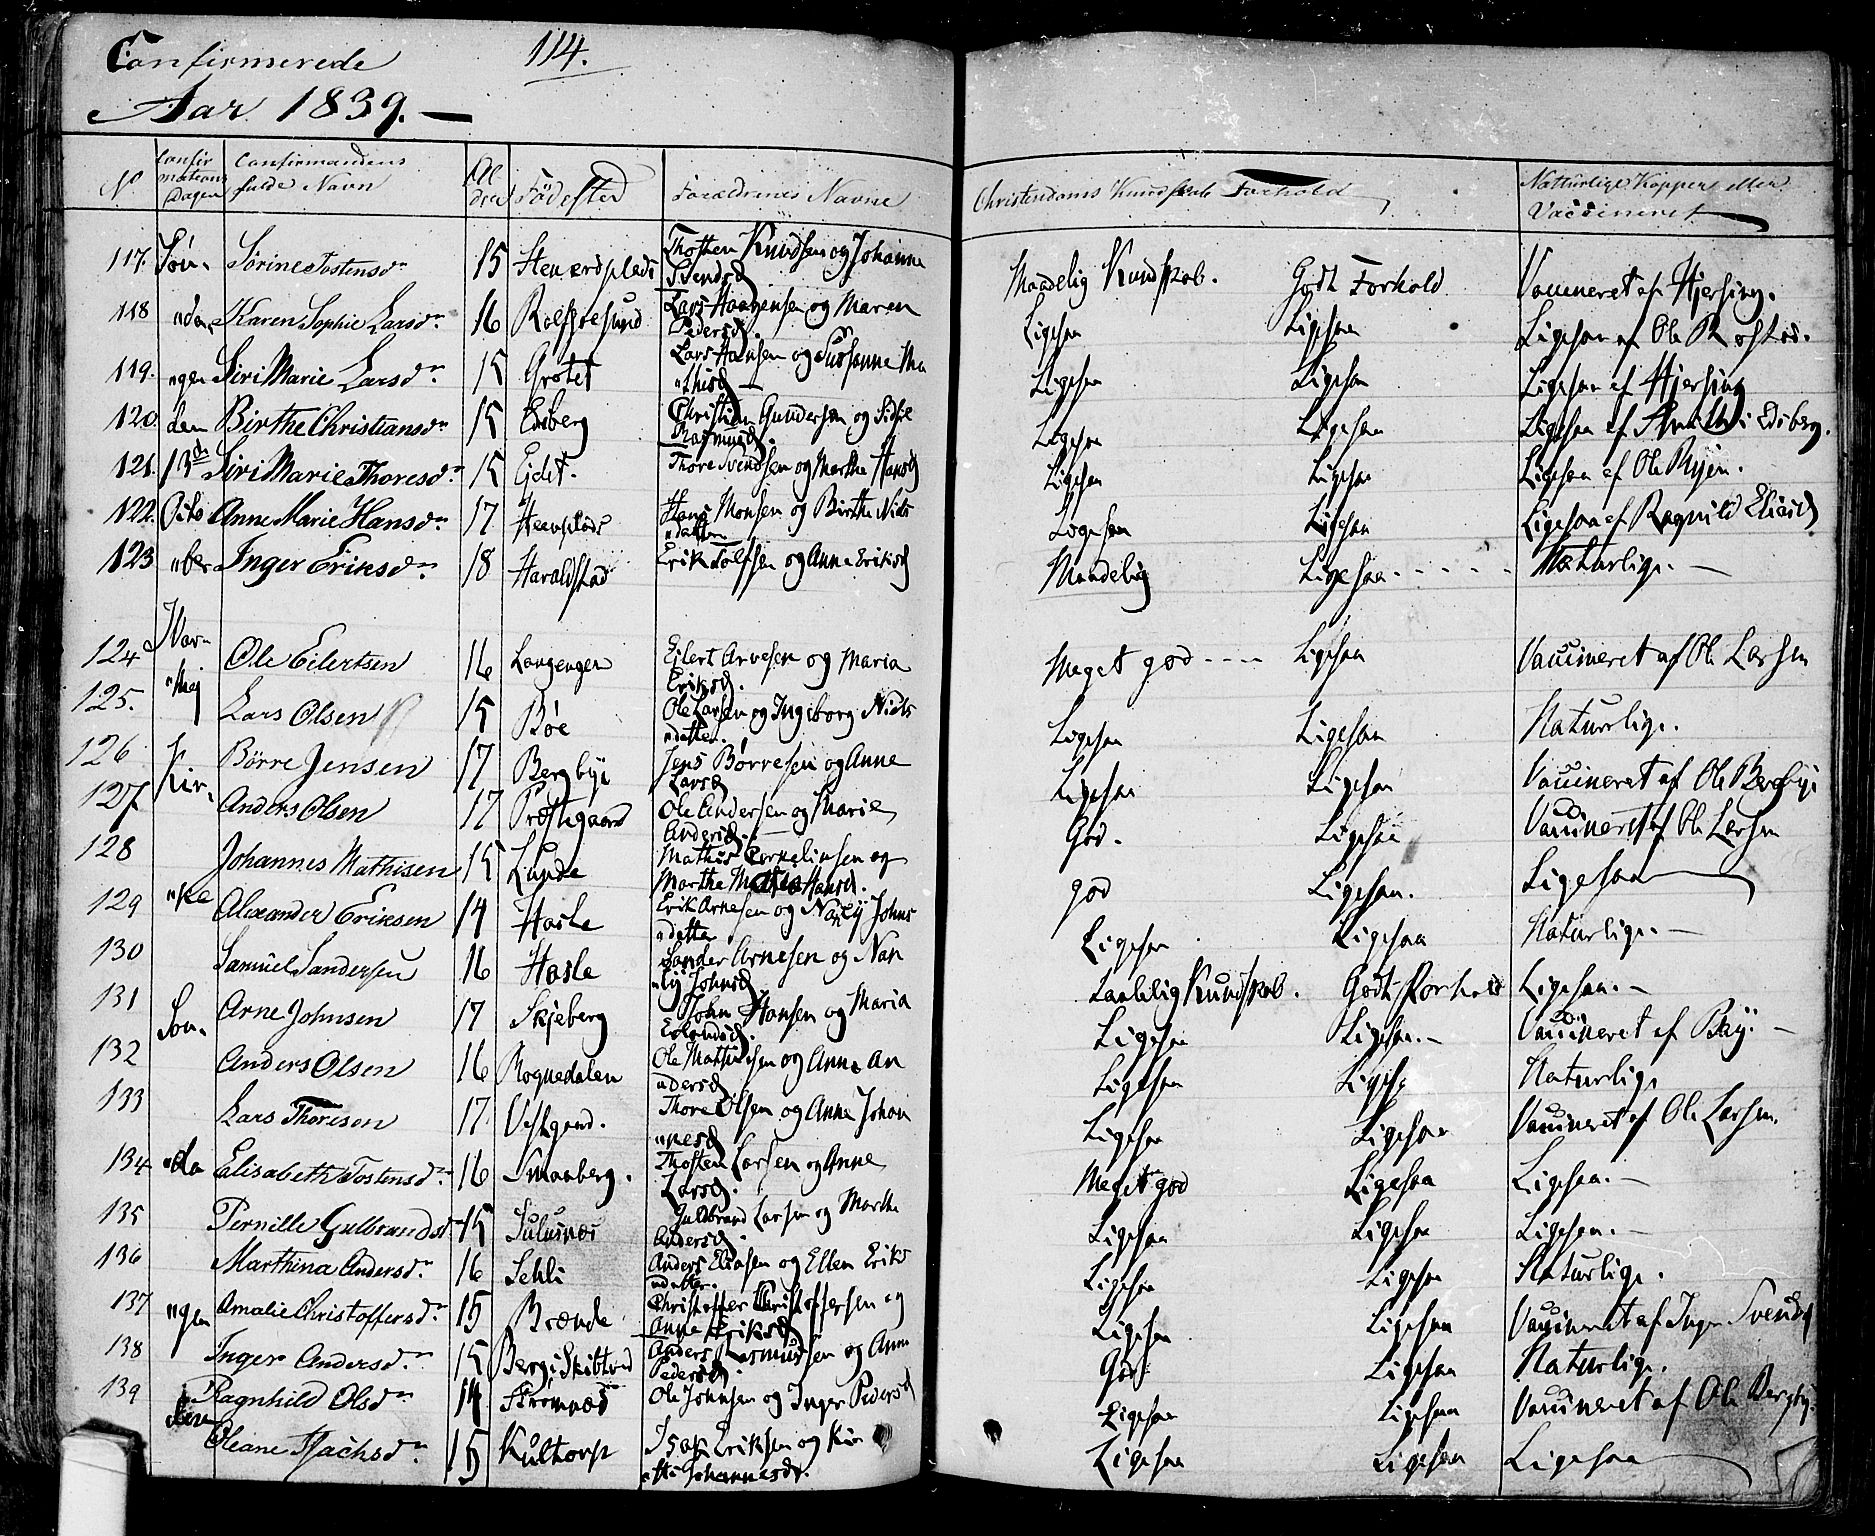 Confirmerede 114.
Aar 1839. —
No Confirmations Dagen Confirmandens fulde Navn Alder Födested Forældrenes Navne Christendoms Kundskab Forhold Naturlige Kopper eller Vaccineret
117. Sön- Sörine Tostensd. 15 Thosten Knudsen og Johanne Svendsd Maadelig Kundskab. Godt Forhold Vaccineret af Hjersing.
118 "da Karen Sophie Larsd. 16 Rolfsøesund Lars Haagensen og Maren Pedersd. Ligesaa Ligesaa Ligesaa af Ole
119. "gen Siri Marie Larsd. 15 Grotet Lars Hansen og Susanne Ma "thisd — Ligesaa Ligesaa Ligesaa af Hjersing
120. den Birthe Christiansd. 15 Edsberg Christian Gundersen og Sidse Rasmusd. Ligesaa Ligesaa Ligesaa af i Edsberg.
121. 13de Siri Marie Thoresd. 15 Ejdet. Thore Svendsen og Marthe Hansd Ligesaa Ligesaa Ligesaa af Ole Ryen.
122. Octo Anne Marie Hansd. 17 Hans Monsen og Birthe Niels "datter Ligesaa Ligesaa Ligesaa af Ragnild Eliasd
123 "ber Inger Eriksd. 18 Haraldstad Erik Tolfsen og Anne Eriksd Maadelig Ligesaa - - - - - Naturlige. —
124 Ole Eilertsen 16 Langengen Eilert Arvesen og Maria Eriksd. Meget god - - - - Ligesaa Vaccineret af Ole Larsen
125. Lars Olsen 15 Böe Ole Larsen og Ingeborg Niels "datter. Ligesaa Ligesaa Naturlige.
126 Kir. Börre Jensen 17 Bergbye Jens Börresen og Anne Larsd Ligesaa Ligesaa Vaccineret af Ole Bergbye
127. Anders Olsen 17 Præstegaard Ole Andersen og Marie Andersd. — God. Ligesaa Vaccineret af Ole Larsen
128 Johannes Mathisen 15 Lunde Mathis Cornelinsen og Marthe Mathea Hansd. god Ligesaa. Ligesaa
129 "ke Alexander Eriksen 14 Hasle Erik Arnesen og Nancy Johns "datter Ligesaa Ligesaa Naturlige. —
130 Samüel Sandersen 16 Hasle Sander Arnesen og Nan "cy Johnsd Taalelig Kundskab. Godt Forhold Ligesaa. —
131 Sön. Arne Johnsen 17 Skjeberg John Hansen og Maria Ligesaa Ligesaa. — Vaccineret af Bay. —
132 Anders Olsen 16 Rognedalen Ole Mathiesen og Anne An "dersd Ligesaa Ligesaa Naturlige
133 Lars Thoresen 17. Vestgaard. Thore Olsen og Anne Johan "nesd Ligesaa Ligesaa Vaccineret af Ole Larsen.
134 "da Elisabeth Tostensd. 16 Smaaberg. Thosten Larsen og Anne Larsd. Meget god Ligesaa Ligesaa. —
135 Pernille Gulbrandsd. 15 Gulbrand Larsen og Marthe Andersd. Ligesaa Ligesaa Ligesaa. —
136 Marthina Andersd. 16 Sehli Anders Eliasen og Ellen Eriks "datter. Ligesaa Ligesaa Naturlige.
137 "gen Amalie Christoffersd. 15 Brænde Christoffer Christoffersen og Anne Eriksd. Ligesaa Ligesaa Vaccineret af Inger Svendsd
138 Inger Andersd. 15 Berg i Skibtved Anders Rasmusen og Anne Pedersd. God Ligesaa Naturlige.
139 Ragnhild Olsd. 14 Strömnæs Ole Johnsen og Inger Pedersd Ligesaa Ligesaa Vaccineret af Ole Bergbye.
Oleane Isachsd. 15 Kultorp Isak Eriksen og Kir "sti Johannesd. Ligesaa Ligesaa Ligesaa